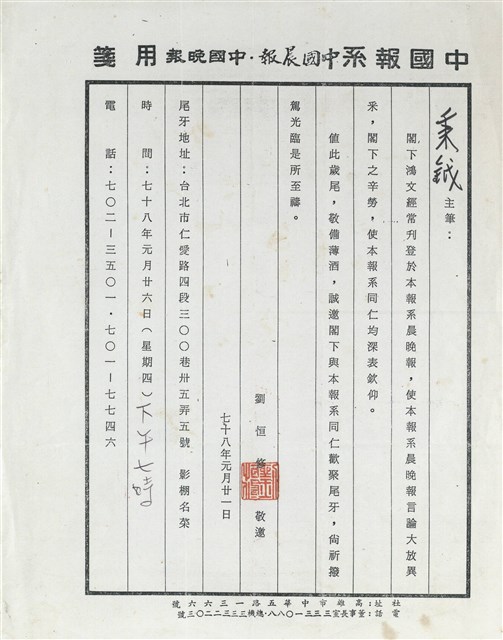 中國報系 中國晨報·中國晚報 用箋
秉鉞主筆：
閣下鴻文經常刊登於本報系晨晚報，使本報系晨晚報言論大放異
釆，閣下之辛勞，使本報系同仁均深表欽仰。
值此歲尾，敬備薄酒，誠邀閣下與本報系同仁歡聚尾牙，尙祈撥
駕光臨是所至禱。
劉恒修 敬邀
七十八年元月廿一日
尾牙地址：台北市仁愛路四段三○○巷卅五弄五號 影棚名菜
時間：七十八年元月廿六日（星期四）下午七時
電話：七○二－三五○一·七○一－七七四六
社址：高雄市中華五路一三六六號
電話：董事長室三三三一○八八·總機三三三二二○三號